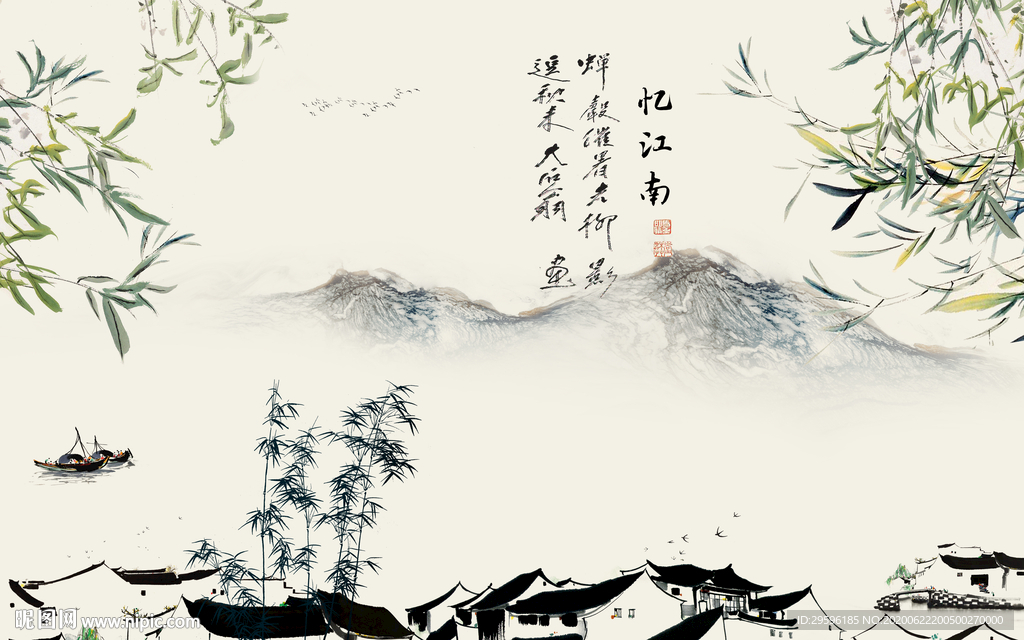 忆江南
蝉声催暑去柳影
逗秋来 大石翁 画
昵图网 www.nipic.com
ID:29596185 NO:20200622200500270000